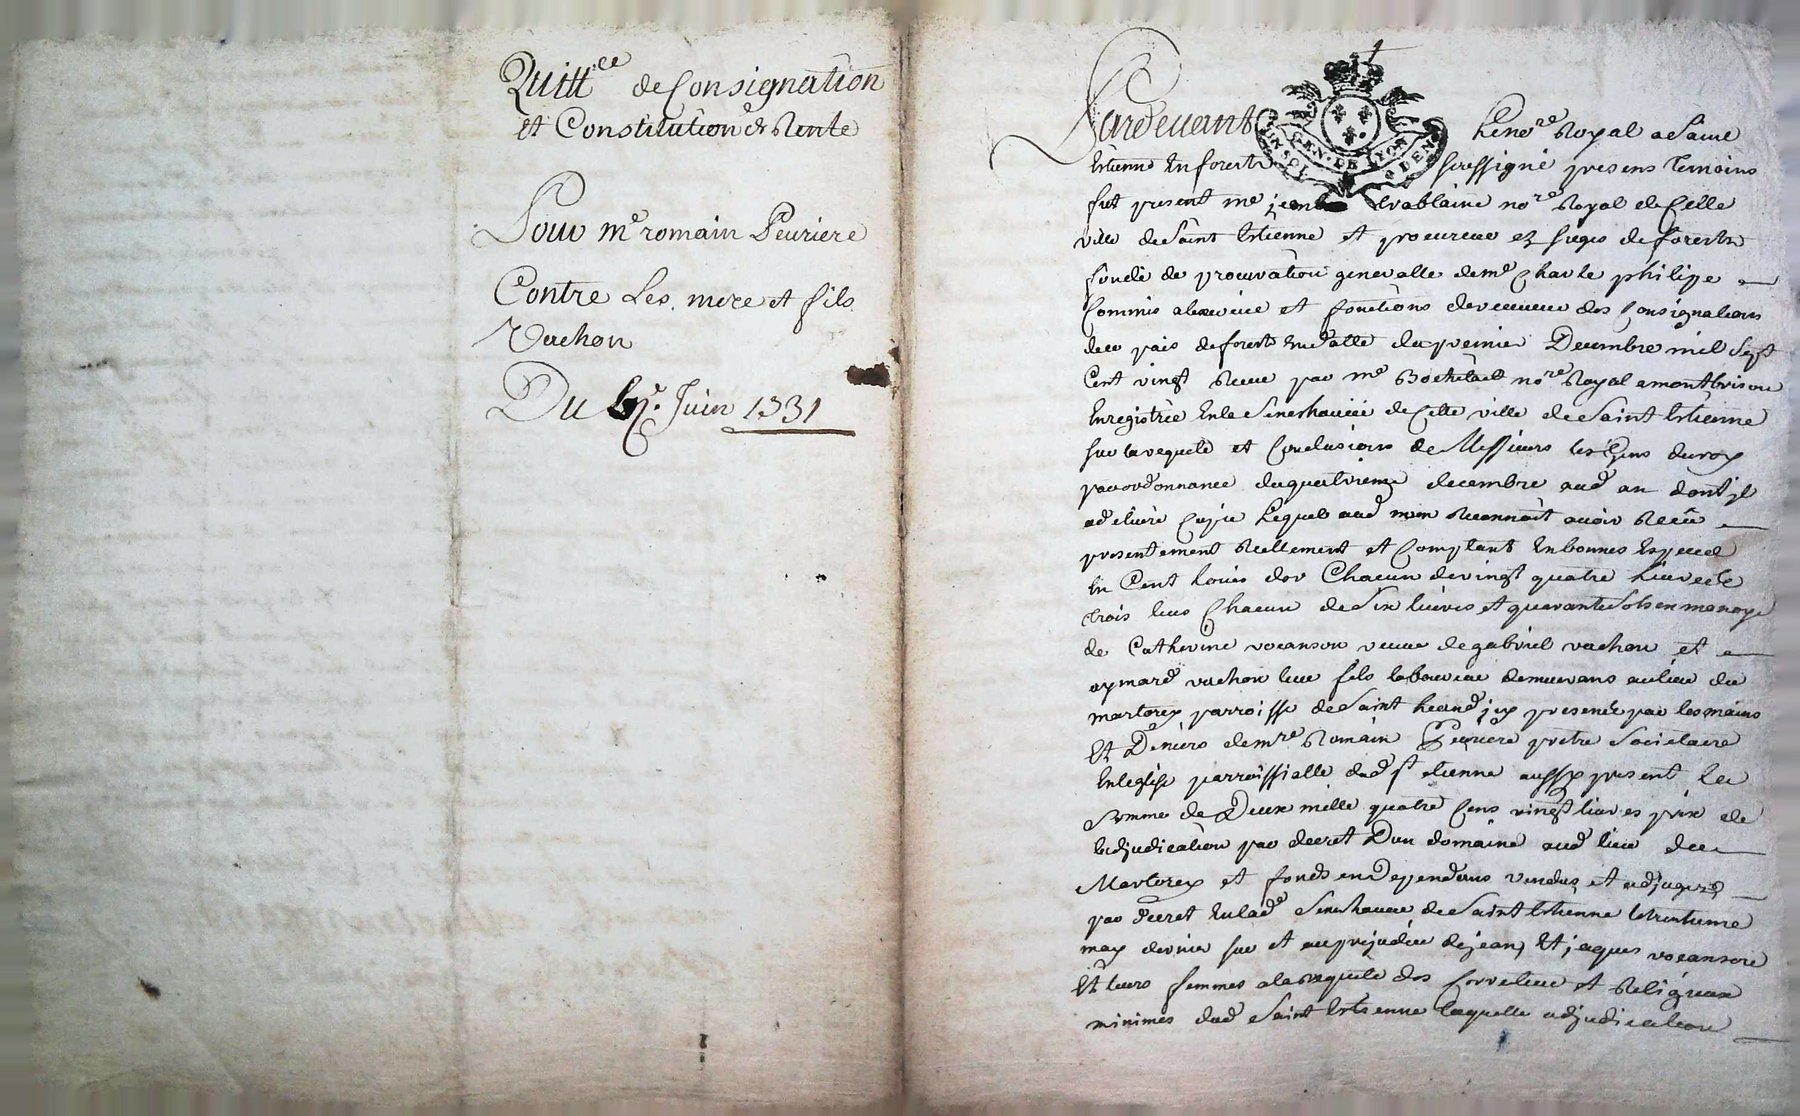 Quitt.ce de Consignation
et Constitution de Rente
Pour me romain Peuriere
Contre Les mere et fils
Vachon
Du Juin 1731
GEN. DE LYON
Pardevant Le nore Royal a Saint
Etienne En forestz soussigné presens temoins
fut present me jean Crablaine nore Royal de Celle
ville de Saint Estienne et procureur ez sieges de forestz
fondé de procuration generalle de me Charle philipe
Commis alexercice et fonctions de receveur des Consignations
du pais de forestz En datte du premier Decembre mil Sept
Cent vingt Receue par me nore Royal a montbrison
Enregistrée En la Seneshaucée de Cette ville de Saint Estienne
sur la requete et Conclusions de Messieurs les Gens du roy
par ordonnance du quatrieme decembre aud an dont jl
a delivré Copie Lequel aud nom Reconnoit avoir Receu
presentement Reellement et Comptant En bonnes Especes
En Cent Louis dor Chacun de vingt quatre Livres
trois Ecus Chacun de Six livres et quarante sols en monoye
de Catherine vocanson veuve de gabriel vachon et
aymard vachon leur fils laboureur demeurans au lieu du
martorey parroisse de Saint heand jcy presents par les mains
Et Deniers de mre Romain Peuriere pretre Societaire
En leglise parroissialle dud st etienne aussy present La
Somme de Deux mille quatre Cens vingt livres prix de
ladjudication par decret Dun domaine aud lieu du
Martorey et fonds en Dependans vendus et adjugés
par decret En lade Seneshaucée de Saint Estienne le trentieme
may dernier sur et au prejudice de jean, Et jaques vocanson
Et leurs femmes a la Requete des Correcteur et Religieux
minimes dud Saint Estienne laquelle adjudication